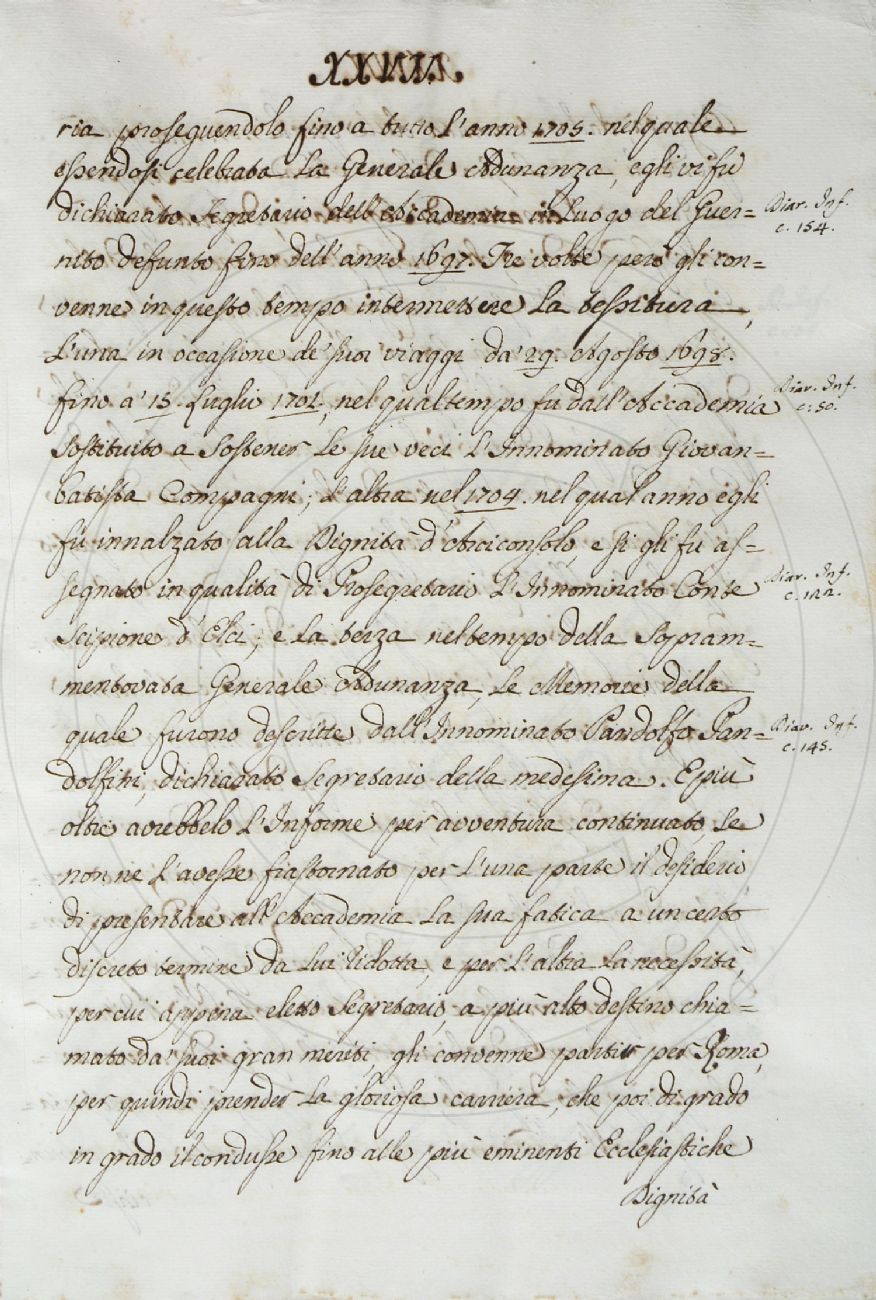 XXVIII.
ria proseguendolo fino a tutto l'anno 1705. nel quale
essendosi celebrata la Generale Adunanza, egli vi fù
dichiarato Segretario dell'Accademia in luogo del Guer=
Diar. Inf.
c. 154.
nito defunto fino dell'anno 1697. Tre volte però gli con=
venne in questo tempo intermettere la tessitura,
L'una in occasione de' suoi viaggi da' 29. Agosto 1698.
fino a' 15. Luglio 1701., nel qual tempo fu dall'Accademia
Diar. Inf.
c. 50.
sostituito a sostener le sue veci l'Innominato Giovan=
batista Compagni; l'altra nel 1704. nel qual anno egli
fù innalzato alla Dignità d'Arciconsolo, e si gli fù as=
segnato in qualità di Prosegretario l'Innominato Conte
Diar. Inf.
c. 122.
Scipione d'Elci; e la terza nel tempo della Sopram=
mentovata Generale Adunanza, le Memorie della
quale furono descritte dall'Innominato Pandolfo Pan=
Diar. Inf.
c. 145.
dolfini, dichiarato Segretario della medesima. E più
oltre avrebbelo l'Informe per avventura continuato, se
non ne l'avesse frastornato per l'una parte il desiderio
di presentare all'Accademia la sua fatica a un certo
discreto termine da lui ridotta, e per l'altra la necessità,
per cui appena eletto Segretario, a più alto destino chia=
mato da' suoi gran meriti, gli convenne partir per Roma,
per quindi prender la gloriosa carriera, che poi di grado
in grado il condusse fino alle più eminenti Ecclesiastiche
Dignità